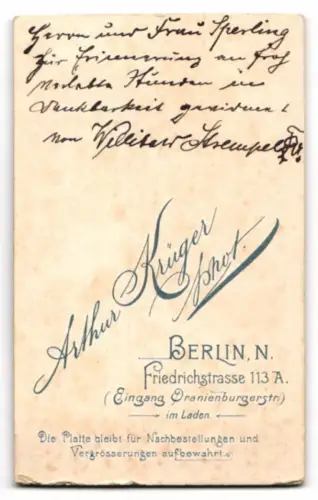 Herrn und Frau Sperling
zur Erinnerung an froh
verlebte Stunden in
Dankbarkeit gewidmet
von Strempel
Arthur Krüger
phot.
BERLIN, N.
Friedrichstrasse 113 A.
(Eingang Oranienburgerstr.)
im Laden.
Die Platte bleibt für Nachbestellungen und
Vergrösserungen aufbewahrt.